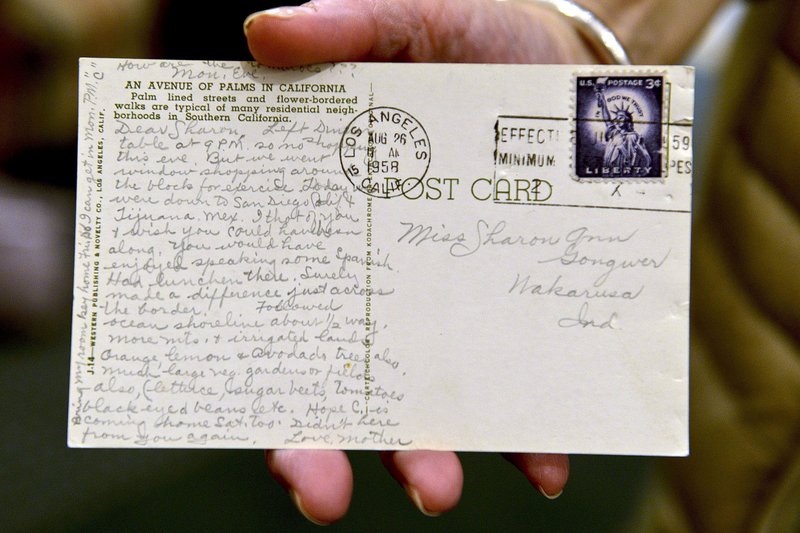 How are the
Mon. Eve.
AN AVENUE OF PALMS IN CALIFORNIA
Palm lined streets and flower-bordered
walks are typical of many residential neigh-
borhoods in Southern California.
Dear Sharon, Left Din
table at 9 P.M. so no shopping
this eve. But we went
window shopping around
the blocks for exercise. Today
were down to San Diego Calif &
Tijuana, Mex. I tho't of you
& wish you could have been
along. You would have
enjoyed speaking some Spanish.
Had luncheon there. Surely
made a difference just across
the border. Followed
ocean shoreline about 1/2 way,
more mts. & irrigated land &
orange lemon & avodado trees also,
much large veg. gardens or fields
also, (lettuce, sugar beets, tomatoes
black eyed beans etc. Hope C. is
coming home Sat. too. Didn't here
from you again. Love, Mother
Bring my room key home trip so I can get in Mon. P.M. "C"
J-14—WESTERN PUBLISHING & NOVELTY CO., LOS ANGELES, CALIF.
REPRODUCTION FROM KODACHROME
LOS ANGELES
15 CALIF.
AUG 26
AM
1958
EFFECTI
MINIMUM
2
59
PES
U.S. POSTAGE 3¢
IN GOD WE TRUST
LIBERTY
POST CARD
Miss Sharon Ann
Gongwer
Wakarusa
Ind